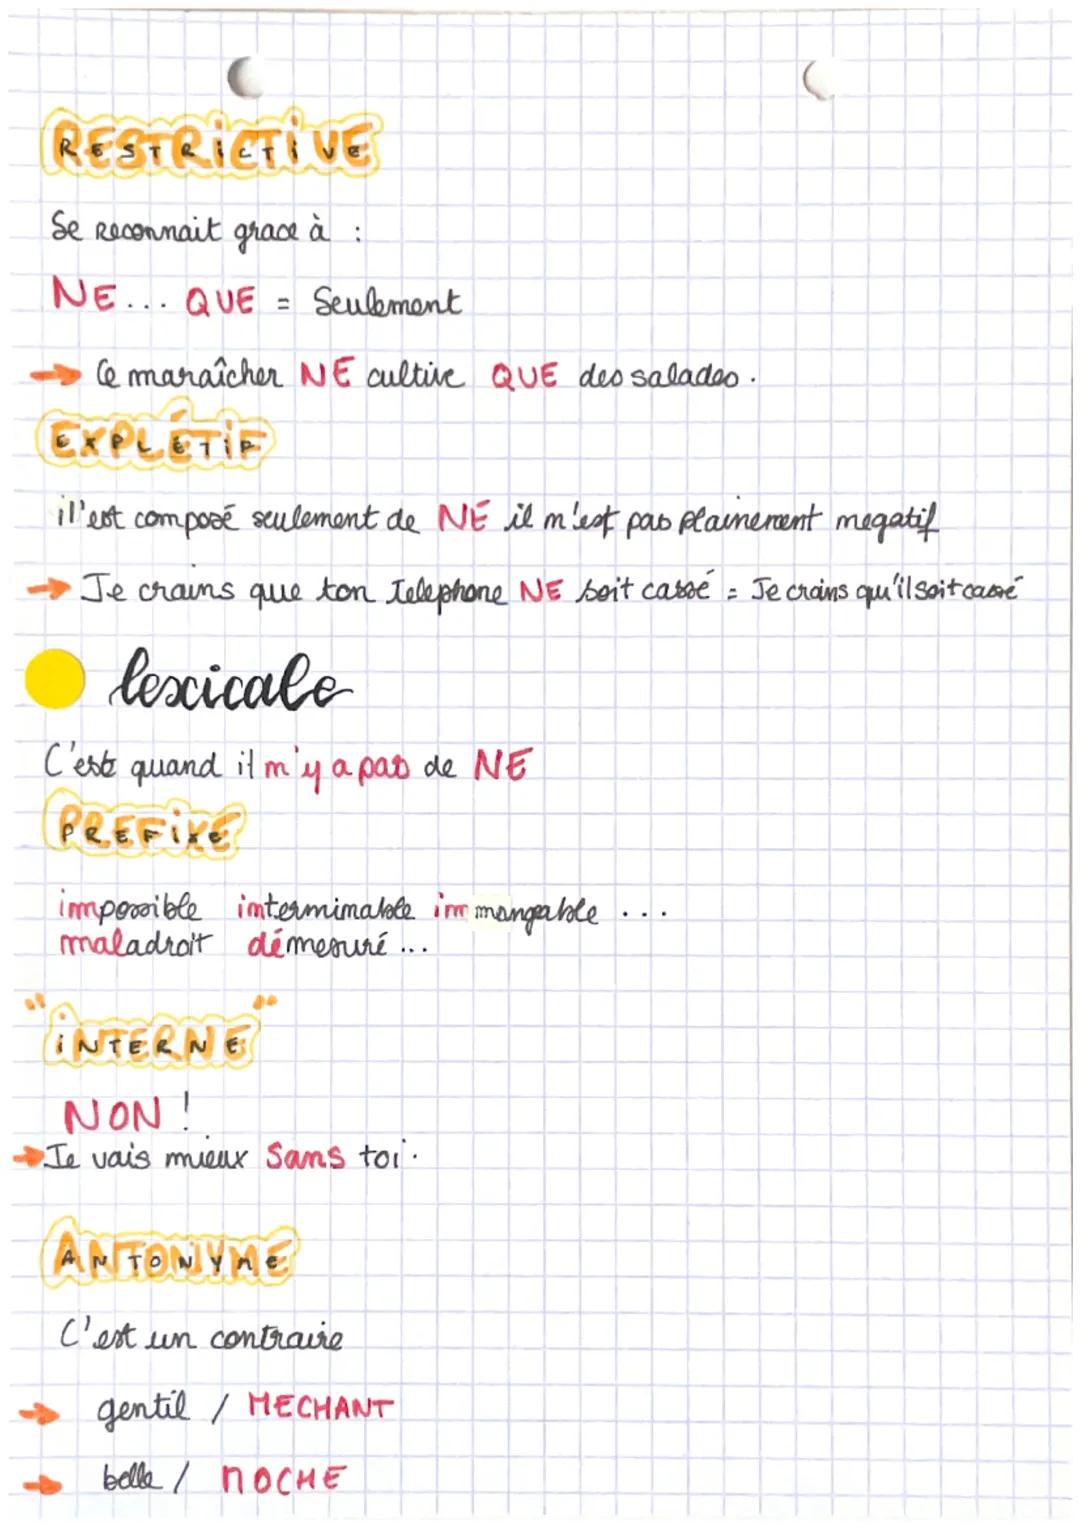 RESTRICTIVE
Se reconnait grace à :
NE... QUE = Seulement
→ Ce maraîcher NE cultive QUE des salades.
EXPLÉTIF
il'est composé seulement de NE il n'est pas plainement negatif
→ Je crains que ton Telephone NE soit cassé = Je crains qu'il soit cassé
lexicale
C'est quand il n'y a pas de NE
PREFIXE
impossible interminable immangeable ...
maladroit démesuré ...
"INTERNE"
NON !
→ Je vais mieux Sans toi.
ANTONYME
C'est un contraire
→ gentil / MECHANT
→ belle / MOCHE